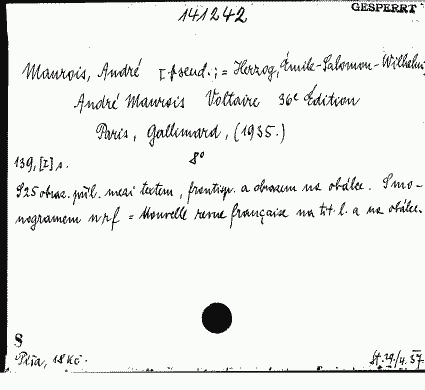 GESPERRT
141242
Maurois, André [pseud.; = Herzog, Émile-Salomon-Wilhelm]
André Maurois Voltaire 36e Édition
Paris, Gallimard, (1935.)
8°
139, [I] s.
S 25 obraz. příl. mezi textem, frontisp. a obrazem na obálce. S mo-
nogramem nrf = Nouvelle revue française na tit. l. a na obálce.
8
Píša, 18 Kč.
St. 29/4. 37.